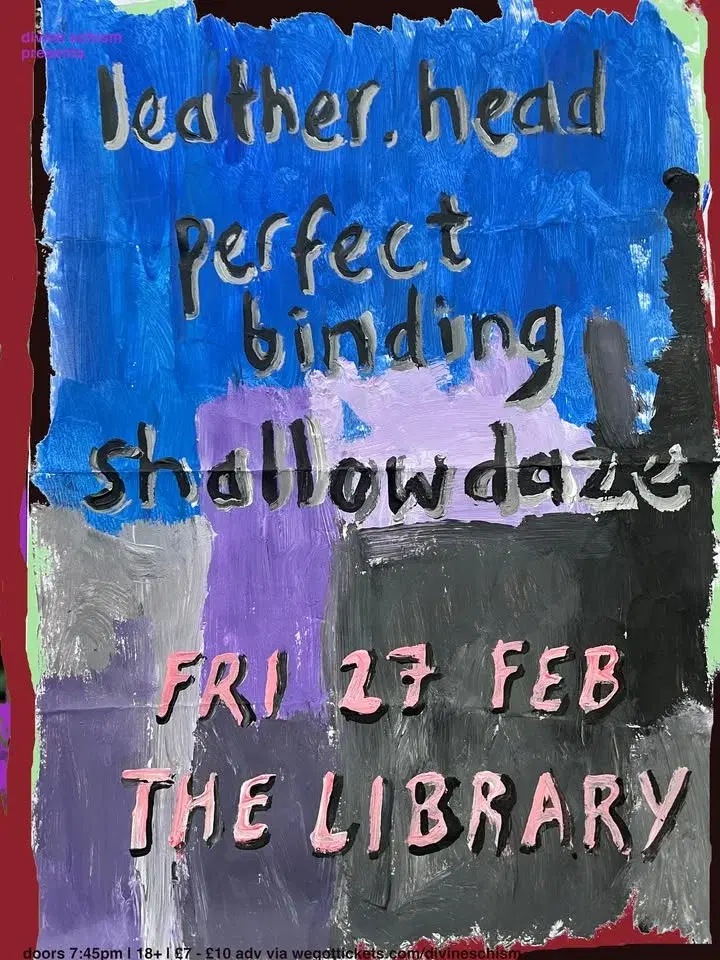 divine schism
presents
leather.head
perfect
binding
shallowdaze
FRI 27 FEB
THE LIBRARY
doors 7:45pm | 18+ | £7 - £10 adv via wegottickets.com/divineschism